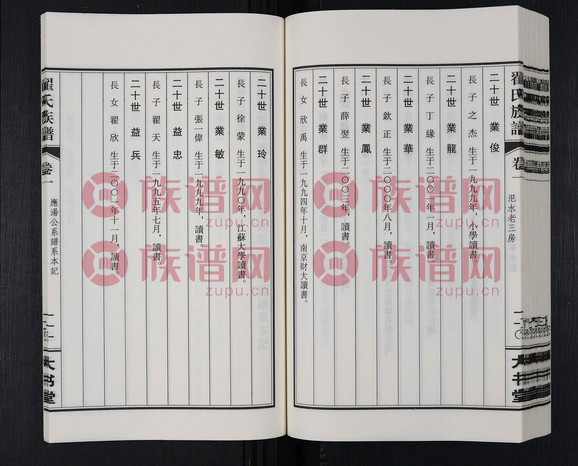 翟氏族譜
卷一
汜水老三房
大书堂
二十世 業俊
長子 之杰 生于一九九九年，小學讀書。
二十世 業龍
長子 丁緣 生于二〇〇一年一月，讀書。
二十世 業華
長子 欽正 生于二〇〇〇年八月，讀書。
二十世 業鳳
長子 薛翌 生于二〇〇三年，讀書。
二十世 業群
長女 欣禹 生于一九九四年十月，南京財大讀書。
二十世 業玲
長子 徐蒙 生于一九九〇年，江蘇大學讀書。
二十世 業敏
長子 張一偉 生于一九九九年，讀書。
二十世 益忠
長子 翟天 生于一九九五年七月，讀書。
二十世 益兵
長女 翟欣 生于二〇〇二年十一月，讀書。
翟氏族譜
卷一
應湯公系譜系本記
大书堂
族谱网
zupu.cn
族谱网
zupu.cn
族谱网
zupu.cn
族谱网
zupu.cn